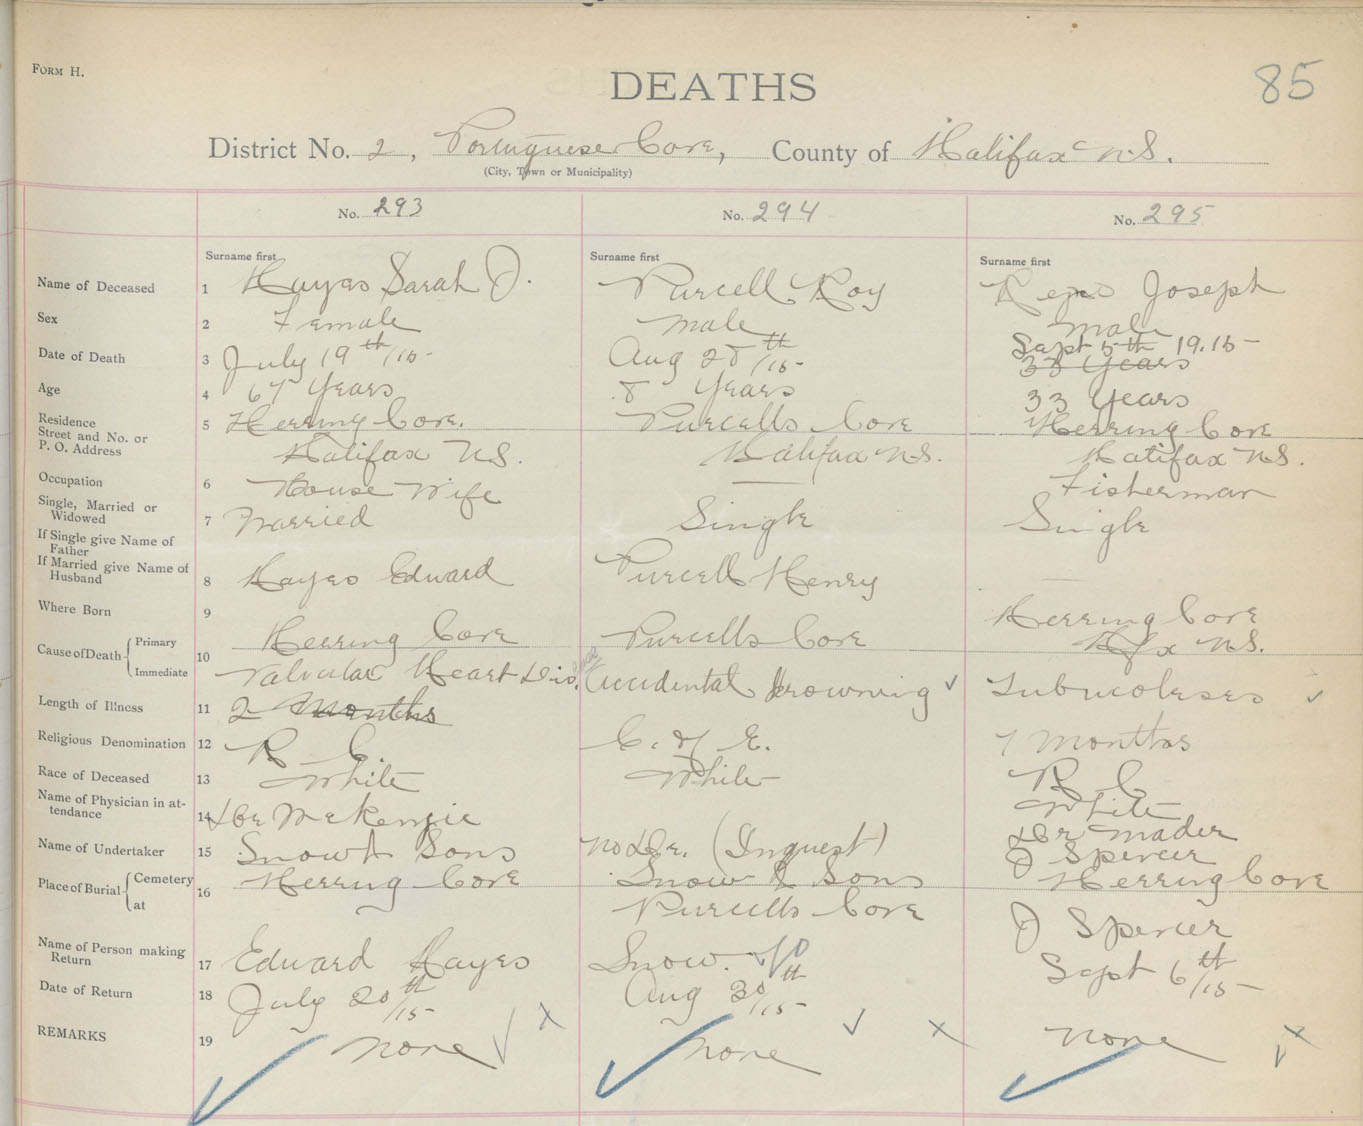 FORM H.
DEATHS
85
District No. 2, Portuguese Cove, County of Halifax N.S.
(City, Town or Municipality)
No. 293 No. 294 No. 295
Surname first Surname first Surname first
Name of Deceased 1 Hayes Sarah J. Purcell Roy Joseph
Sex 2 Female male male
Date of Death 3 July 19th/15 Aug 28th/15 Sept 5th 1915
38 Years
Age 4 67 Years 8 Years 33 Years
Residence
Street and No. or
P. O. Address
5 Herring Cove. Purcells Cove Herring Cove
Halifax N.S. Halifax N.S. Halifax N.S.
Occupation 6 House Wife — Fisherman
Single, Married or
Widowed
7 Married Single Single
If Single give Name of
Father
If Married give Name of
Husband
8 Hayes Edward Purcell Henry
Where Born 9 Herring Cove Purcells Cove Herring Cove
Hfx N.S.
Cause of Death Primary
Immediate
10 Valvular Heart Dis. Accidental Drowning Tubuculeses
Length of Illness 11 2 Months 7 Months
Religious Denomination 12 R. C. C. of E. R. C
Race of Deceased 13 White White White
Name of Physician in at-
tendance
14 Dr McKenzie No Dr. (Inquest) Dr Mader
Name of Undertaker 15 Snow & Sons Snow & Sons J Spencer
Place of Burial Cemetery
at
16 Herring Cove Purcells Cove Herring Cove
Name of Person making
Return
17 Edward Hayes Snow. J Spencer
Date of Return 18 July 20th/15 Aug 30th/15 Sept 6th/15
REMARKS 19 None None None